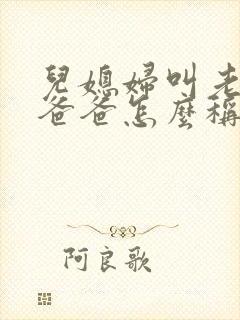 兒媳婦叫老
爸爸怎麼稱
阿良歌